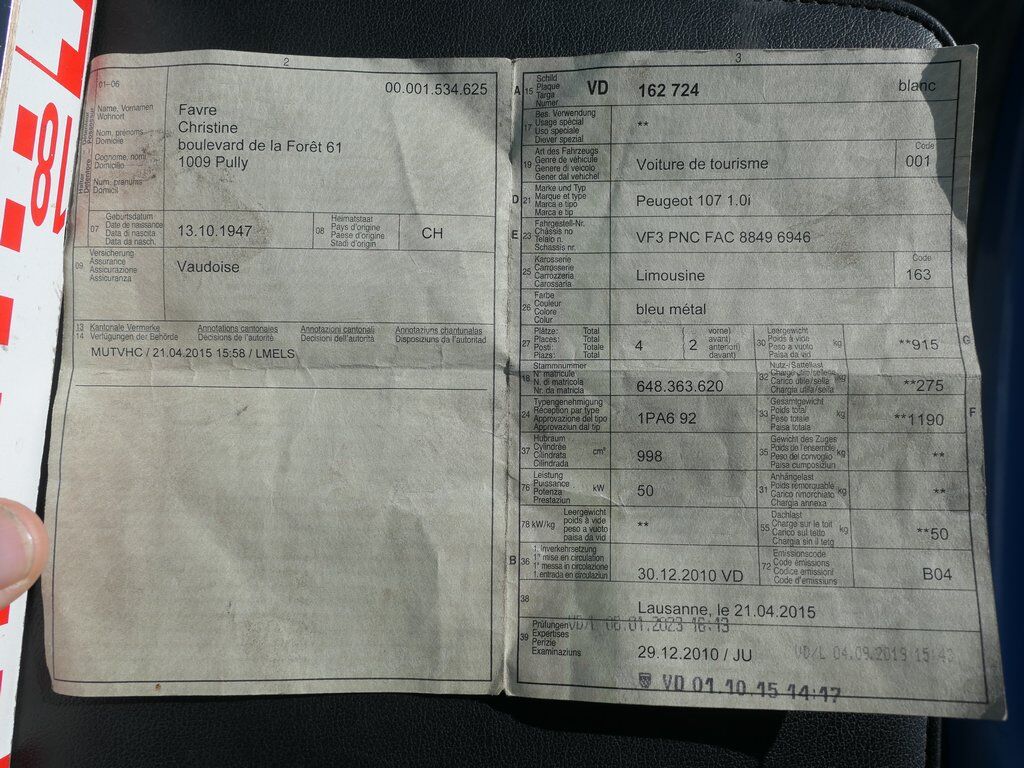 18
2
01–06
00.001.534.625
Halter
Détenteur
Name, Vornamen
Wohnort
Nom, prénoms
Domicile
Cognome, nomi
Domicilio
Num, pranums
Domicil
Favre
Christine
boulevard de la Forêt 61
1009 Pully
07
Geburtsdatum
Date de naissance
Data di nascita
Data da nasch.
13.10.1947
08
Heimatstaat
Pays d'origine
Paese d'origine
Stadi d'origin
CH
09
Versicherung
Assurance
Assicurazione
Assicuranza
Vaudoise
13
14
Kantonale Vermerke
Verfügungen der Behörde
Annotations cantonales
Décisions de l'autorité
Annotazioni cantonali
Decisioni dell'autorità
Annotaziuns chantunalas
Disposiziuns da l'autoritad
MUTVHC / 21.04.2015 15:58 / LMELS
3
A 15
Schild
Plaque
Targa
Numer
VD 162 724 blanc
17
Bes. Verwendung
Usage spécial
Uso speciale
Diever spezial
**
19
Art des Fahrzeugs
Genre de véhicule
Genere di veicolo
Gener dal vehichel
Voiture de tourisme
Code
001
D 21
Marke und Typ
Marque et type
Marca e tipo
Marca e tip
Peugeot 107 1.0i
E 23
Fahrgestell-Nr.
Châssis no
Telaio n.
Schassis nr.
VF3 PNC FAC 8849 6946
25
Karosserie
Carrosserie
Carrozzeria
Carossaria
Limousine
Code
163
26
Farbe
Couleur
Colore
Colur
bleu métal
27
Plätze: Total
Places: Total
Posti: Totale
Plazs: Total
4
( 2
vorne)
avant)
anteriori)
davant)
30
Leergewicht
Poids à vide
Peso a vuoto
Paisa da vid
kg
**915
G
18
Stammnummer
N° matricule
N. di matricola
Nr. da matricla
648.363.620
32
Nutz-/Sattellast
Charge utile/sellette
Carico utile/sella
Chargia utila/sella
kg
**275
24
Typengenehmigung
Réception par type
Approvazione del tipo
Approvaziun dal tip
1PA6 92
33
Gesamtgewicht
Poids total
Peso totale
Paisa totala
kg
**1190
F
37
Hubraum
Cylindrée
Cilindrata
Cilindrada
cm³
998
35
Gewicht des Zuges
Poids de l'ensemble
Peso del convoglio
Paisa cumposiziun
kg
**
76
Leistung
Puissance
Potenza
Prestaziun
kW
50
31
Anhängelast
Poids remorquable
Carico rimorchiato
Chargia annexa
kg
**
78 kW/kg
Leergewicht
poids à vide
peso a vuoto
paisa da vid
**
55
Dachlast
Charge sur le toit
Carico sul tetto
Chargia sin il tetg
kg
**50
B 36
1. Inverkehrsetzung
1re mise en circulation
1a messa in circolazione
1. entrada en circulaziun
30.12.2010 VD
72
Emissionscode
Code émissions
Codice emissioni
Code d'emissiuns
B04
38
Lausanne, le 21.04.2015
39
Prüfungen
Expertises
Perizie
Examinaziuns
VD/L 06.01.2023 16:13
29.12.2010 / JU
VD/L 04.09.2019 15:43
VD 01 10 15 14:17